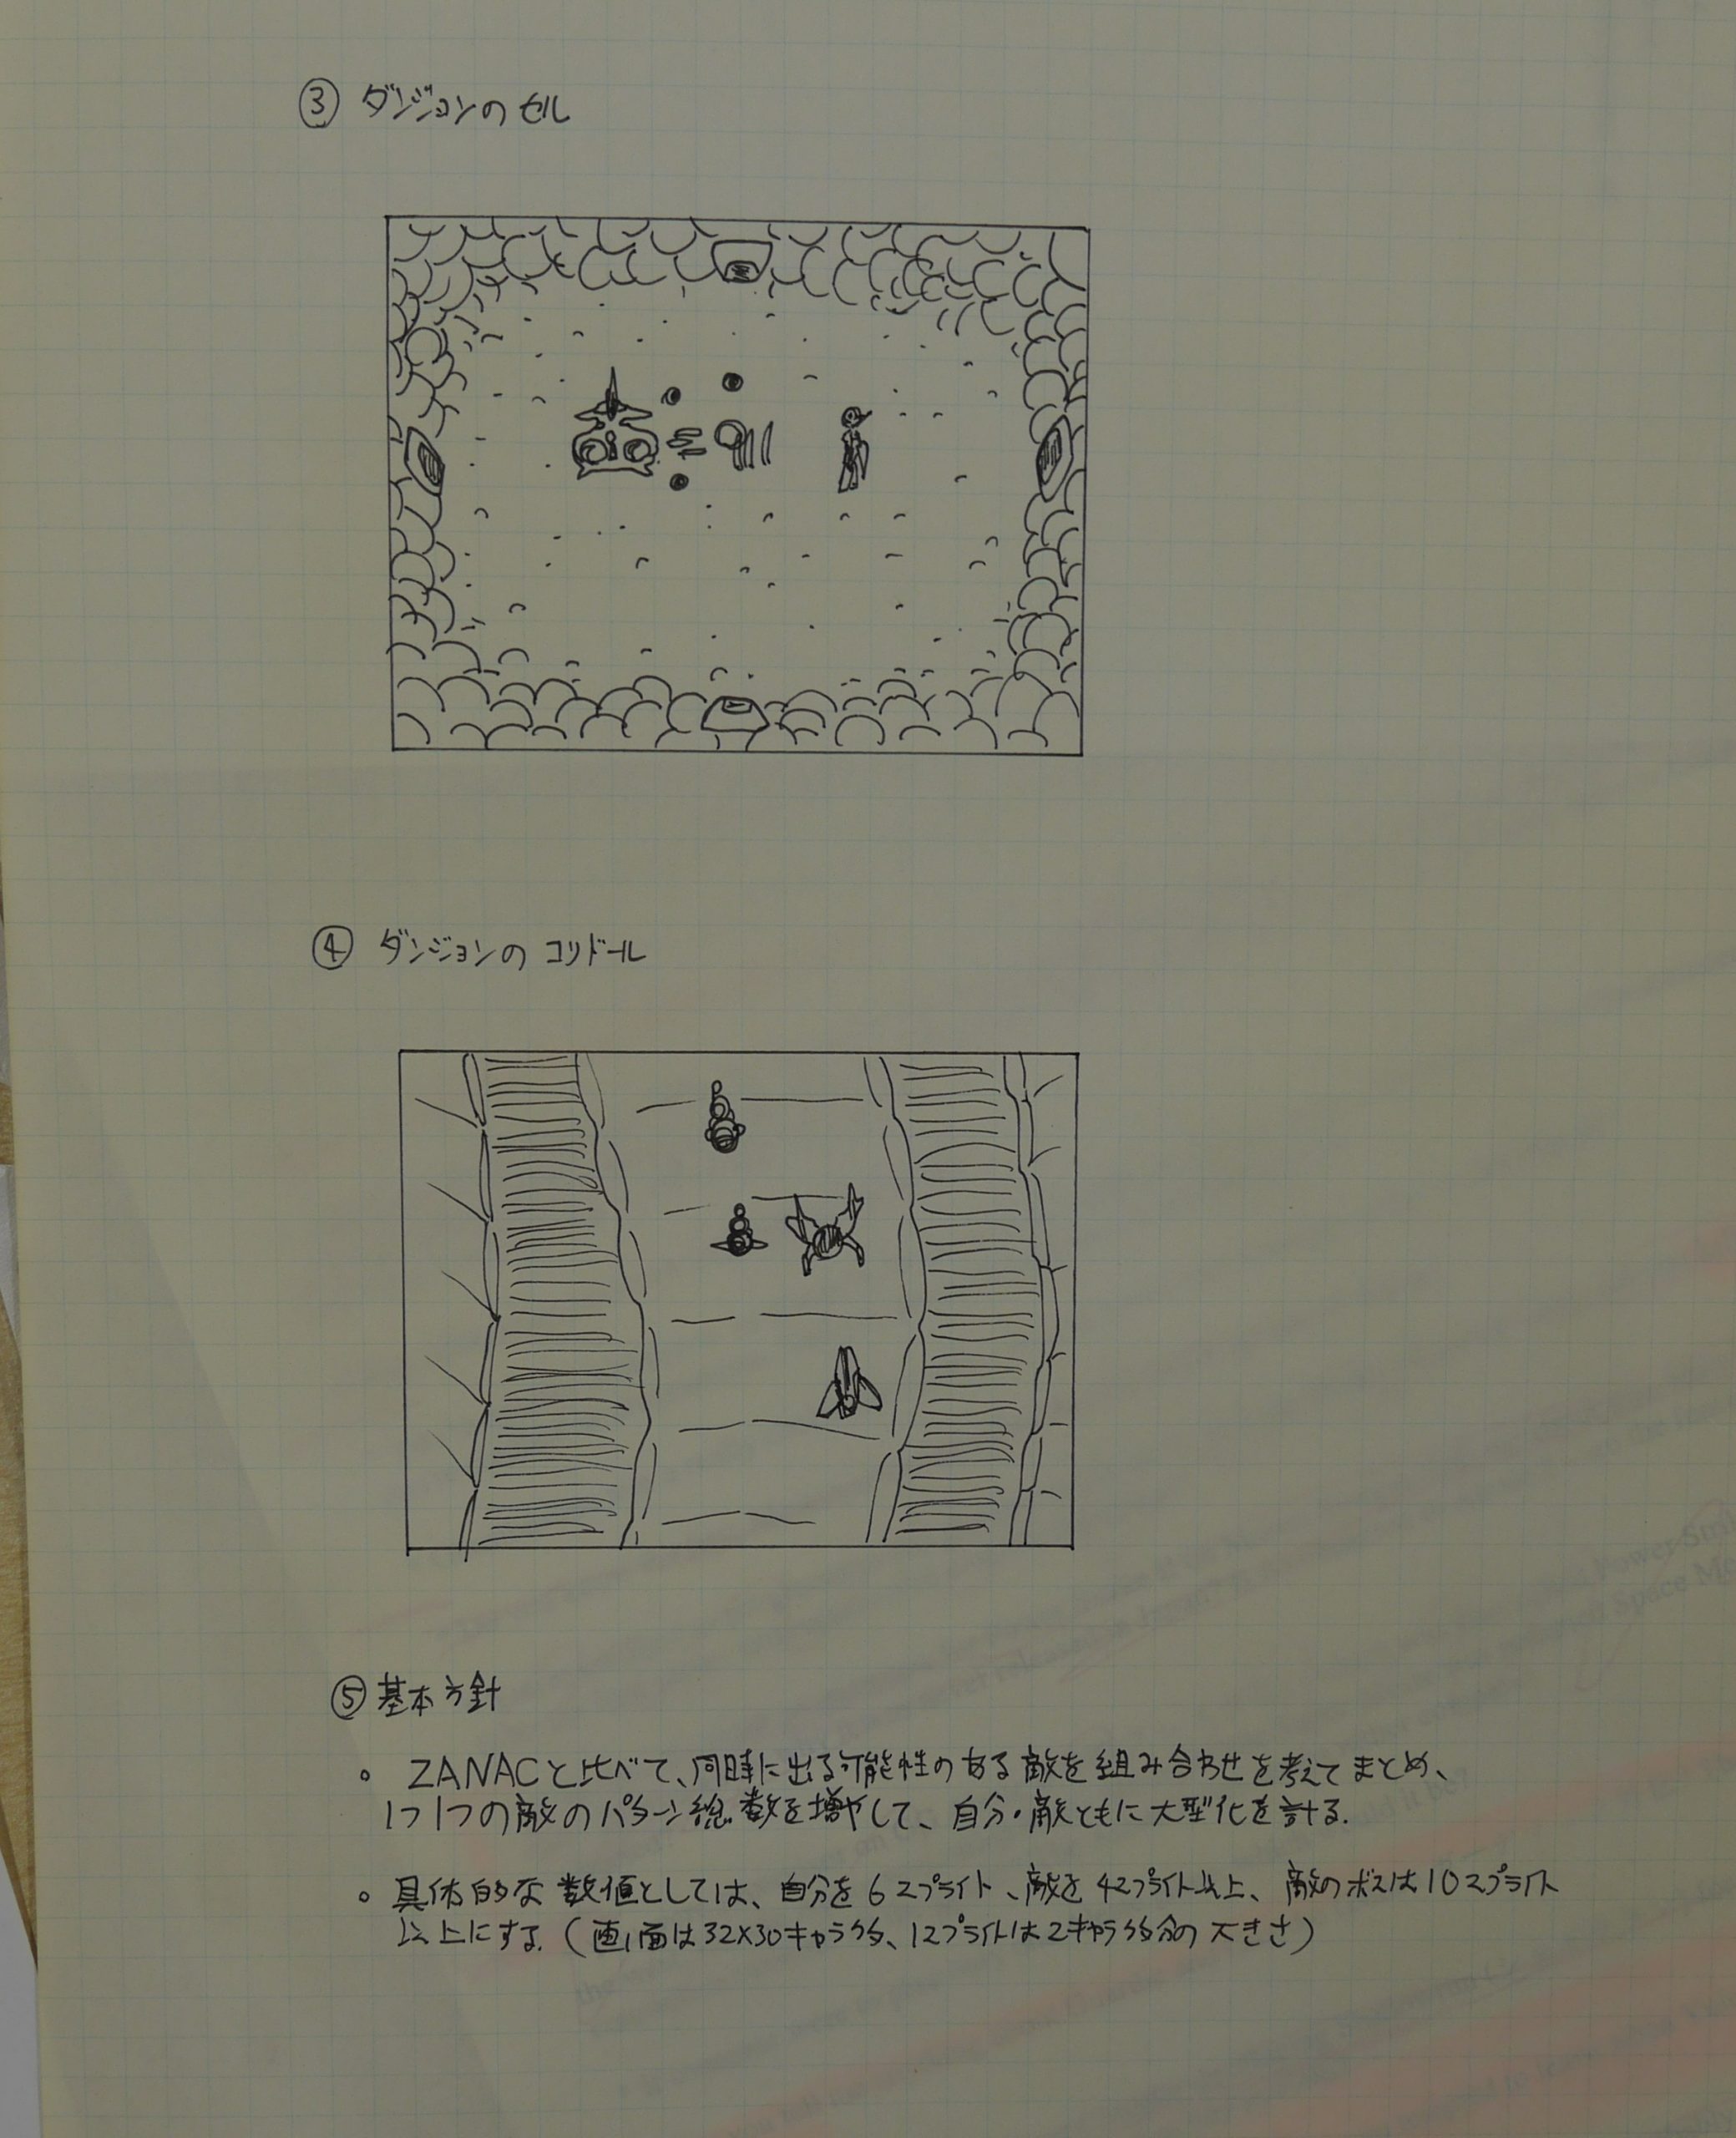 ③ ダンジョンのセル
④ ダンジョンのコリドール
⑤ 基本方針
。 ZANACと比べて、同時に出る可能性のある敵を組み合わせを考えてまとめ、
1つ1つの敵のパターン総数を増やして、自分・敵ともに大型化を計る.
。 具体的な数値としては、自分を6スプライト、敵を4スプライト以上、敵のボスは10スプライト
以上にする.(画面は32×30キャラクタ、1スプライトは2キャラクタ分の大きさ)
Power St
Space M